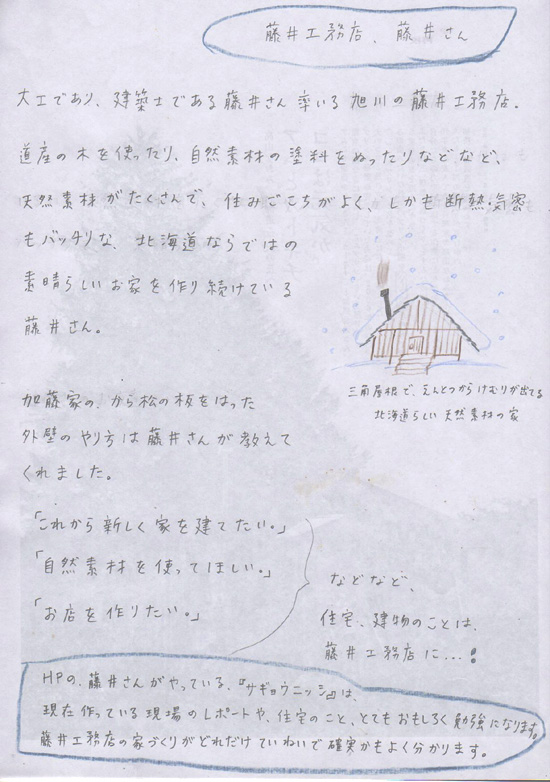 藤井工務店、藤井さん
大工であり、建築士である藤井さん率いる旭川の藤井工務店。
道産の木を使ったり、自然素材の塗料をぬったりなどなど、
天然素材がたくさんで、住みごこちがよく、しかも断熱・気密
もバッチリな、北海道ならではの
素晴らしいお家を作り続けている
藤井さん。
三角屋根で、えんとつからけむりが出てる
北海道らしい天然素材の家
加藤家の、から松の板をはった
外壁のやり方は藤井さんが教えて
くれました。
「これから新しく家を建てたい。」
「自然素材を使ってほしい。」
「お店を作りたい。」
などなど、
住宅、建物のことは、
藤井工務店に...!
HPの、藤井さんがやっている、『サギョウニッシ』は、
現在作っている現場のレポートや、住宅のこと、とてもおもしろく勉強になります。
藤井工務店の家づくりがどれだけていねいで確実かもよく分かります。